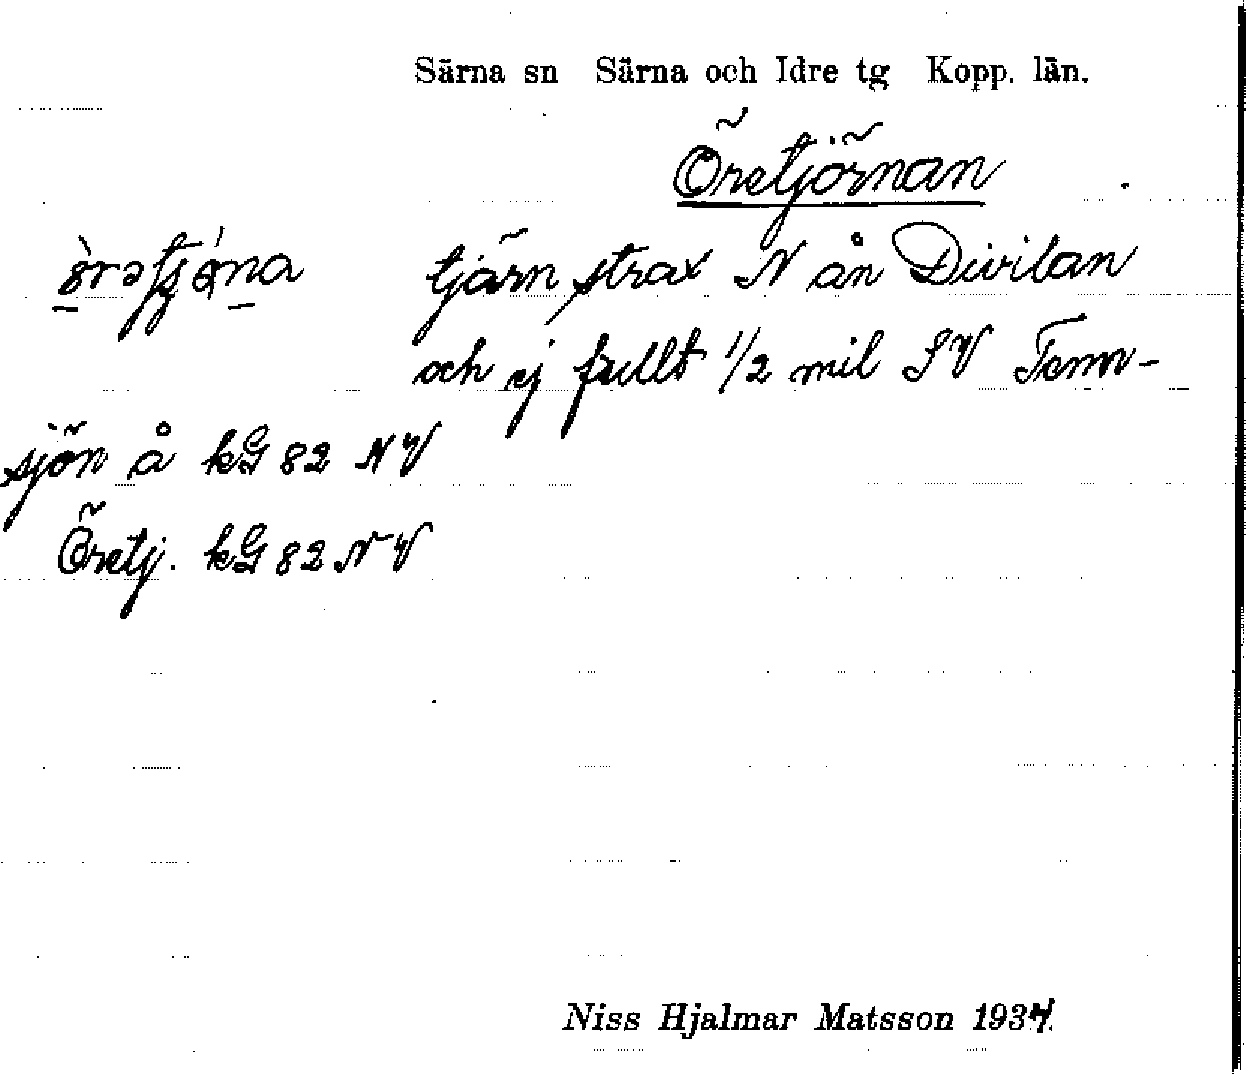 Särna sn Särna och Idre tg Kopp. län.
Öretjörnan
tjärn strax N ån Divilan
och ej fullt 1/2 mil SV Tenn-
sjön å kG 82 NV
Öretj. kG 82 NV
Niss Hjalmar Matsson 1937.